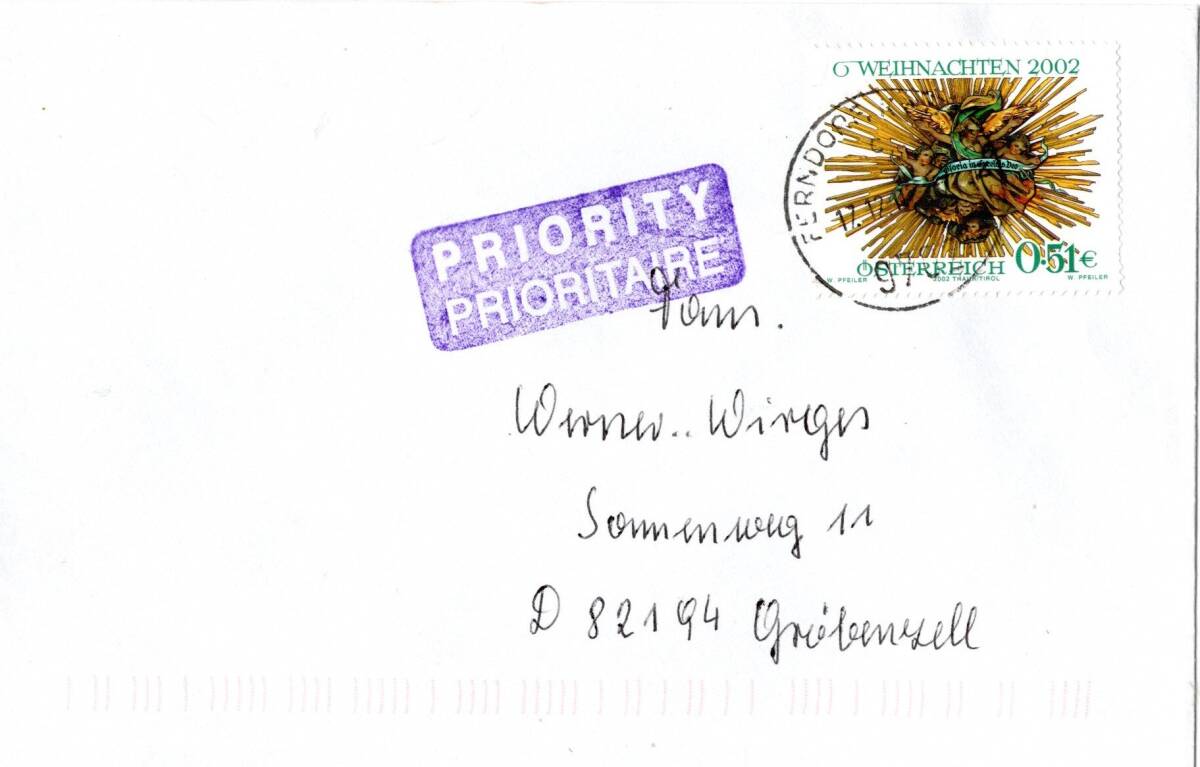 WEIHNACHTEN 2002
FERNDORF
17.12
gloria in excelsis Deo
ÖSTERREICH 0.51€
W. PFEILER 2002 THAUR/TIROL W. PFEILER
PRIORITY
PRIORITAIRE
Werner Wirges
Sonnenweg 11
D 82194 Gröbenzell